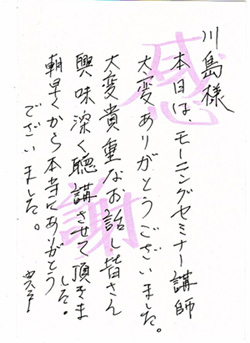 川島様
本日は、モーニングセミナー講師
大変ありがとうございました。
大変貴重なお話し皆さん
興味深く聴講させて頂きま
した。
朝早くから本当にありがとう
ございました。
感謝